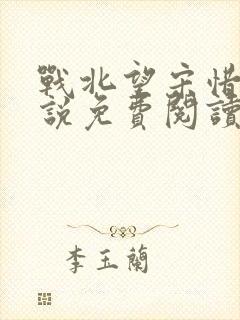 戰北望宋惜
說免費閱讀
李玉蘭